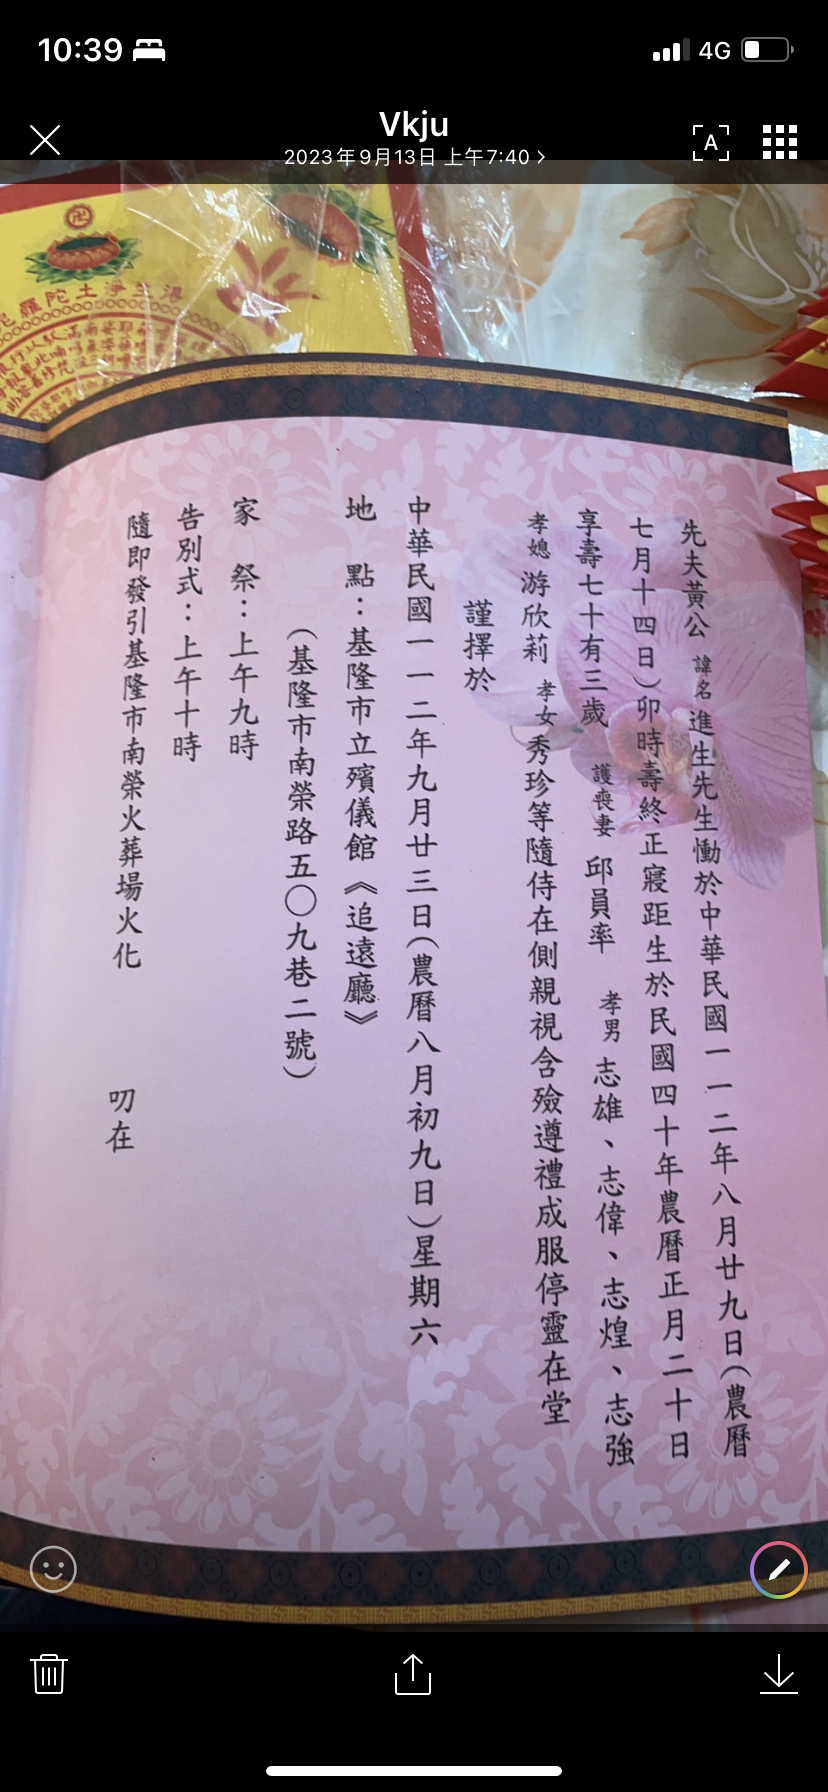 10:39
4G
Vkju
2023年9月13日 上午7:40
A
陀羅陀土淨生得
先夫黃公 諱名 進生先生慟於中華民國一一二年八月廿九日(農曆
七月十四日)卯時壽終正寢距生於民國四十年農曆正月二十日
享壽七十有三歲 護喪妻 邱員率 孝男 志雄、志偉、志煌、志強
孝媳 游欣莉 孝女 秀珍等隨侍在側親視含殮遵禮成服停靈在堂
謹擇於
中華民國一一二年九月廿三日(農曆八月初九日)星期六
地 點：基隆市立殯儀館《追遠廳》
(基隆市南榮路五〇九巷二號)
家 祭：上午九時
告別式：上午十時
隨即發引基隆市南榮火葬場火化 叨在